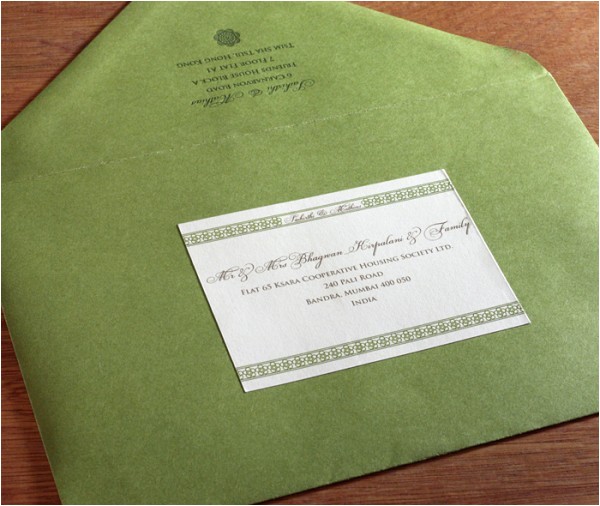 &
6 Carnarvon Road
Friends House Block A
7 Floor Flat A1
Tsim Sha Tsui, Hong Kong
&
Mr & Mrs Bhagwan Kirpalani & Family
Flat 65 Ksara Cooperative Housing Society Ltd.
240 Pali Road
Bandra, Mumbai 400 050
India